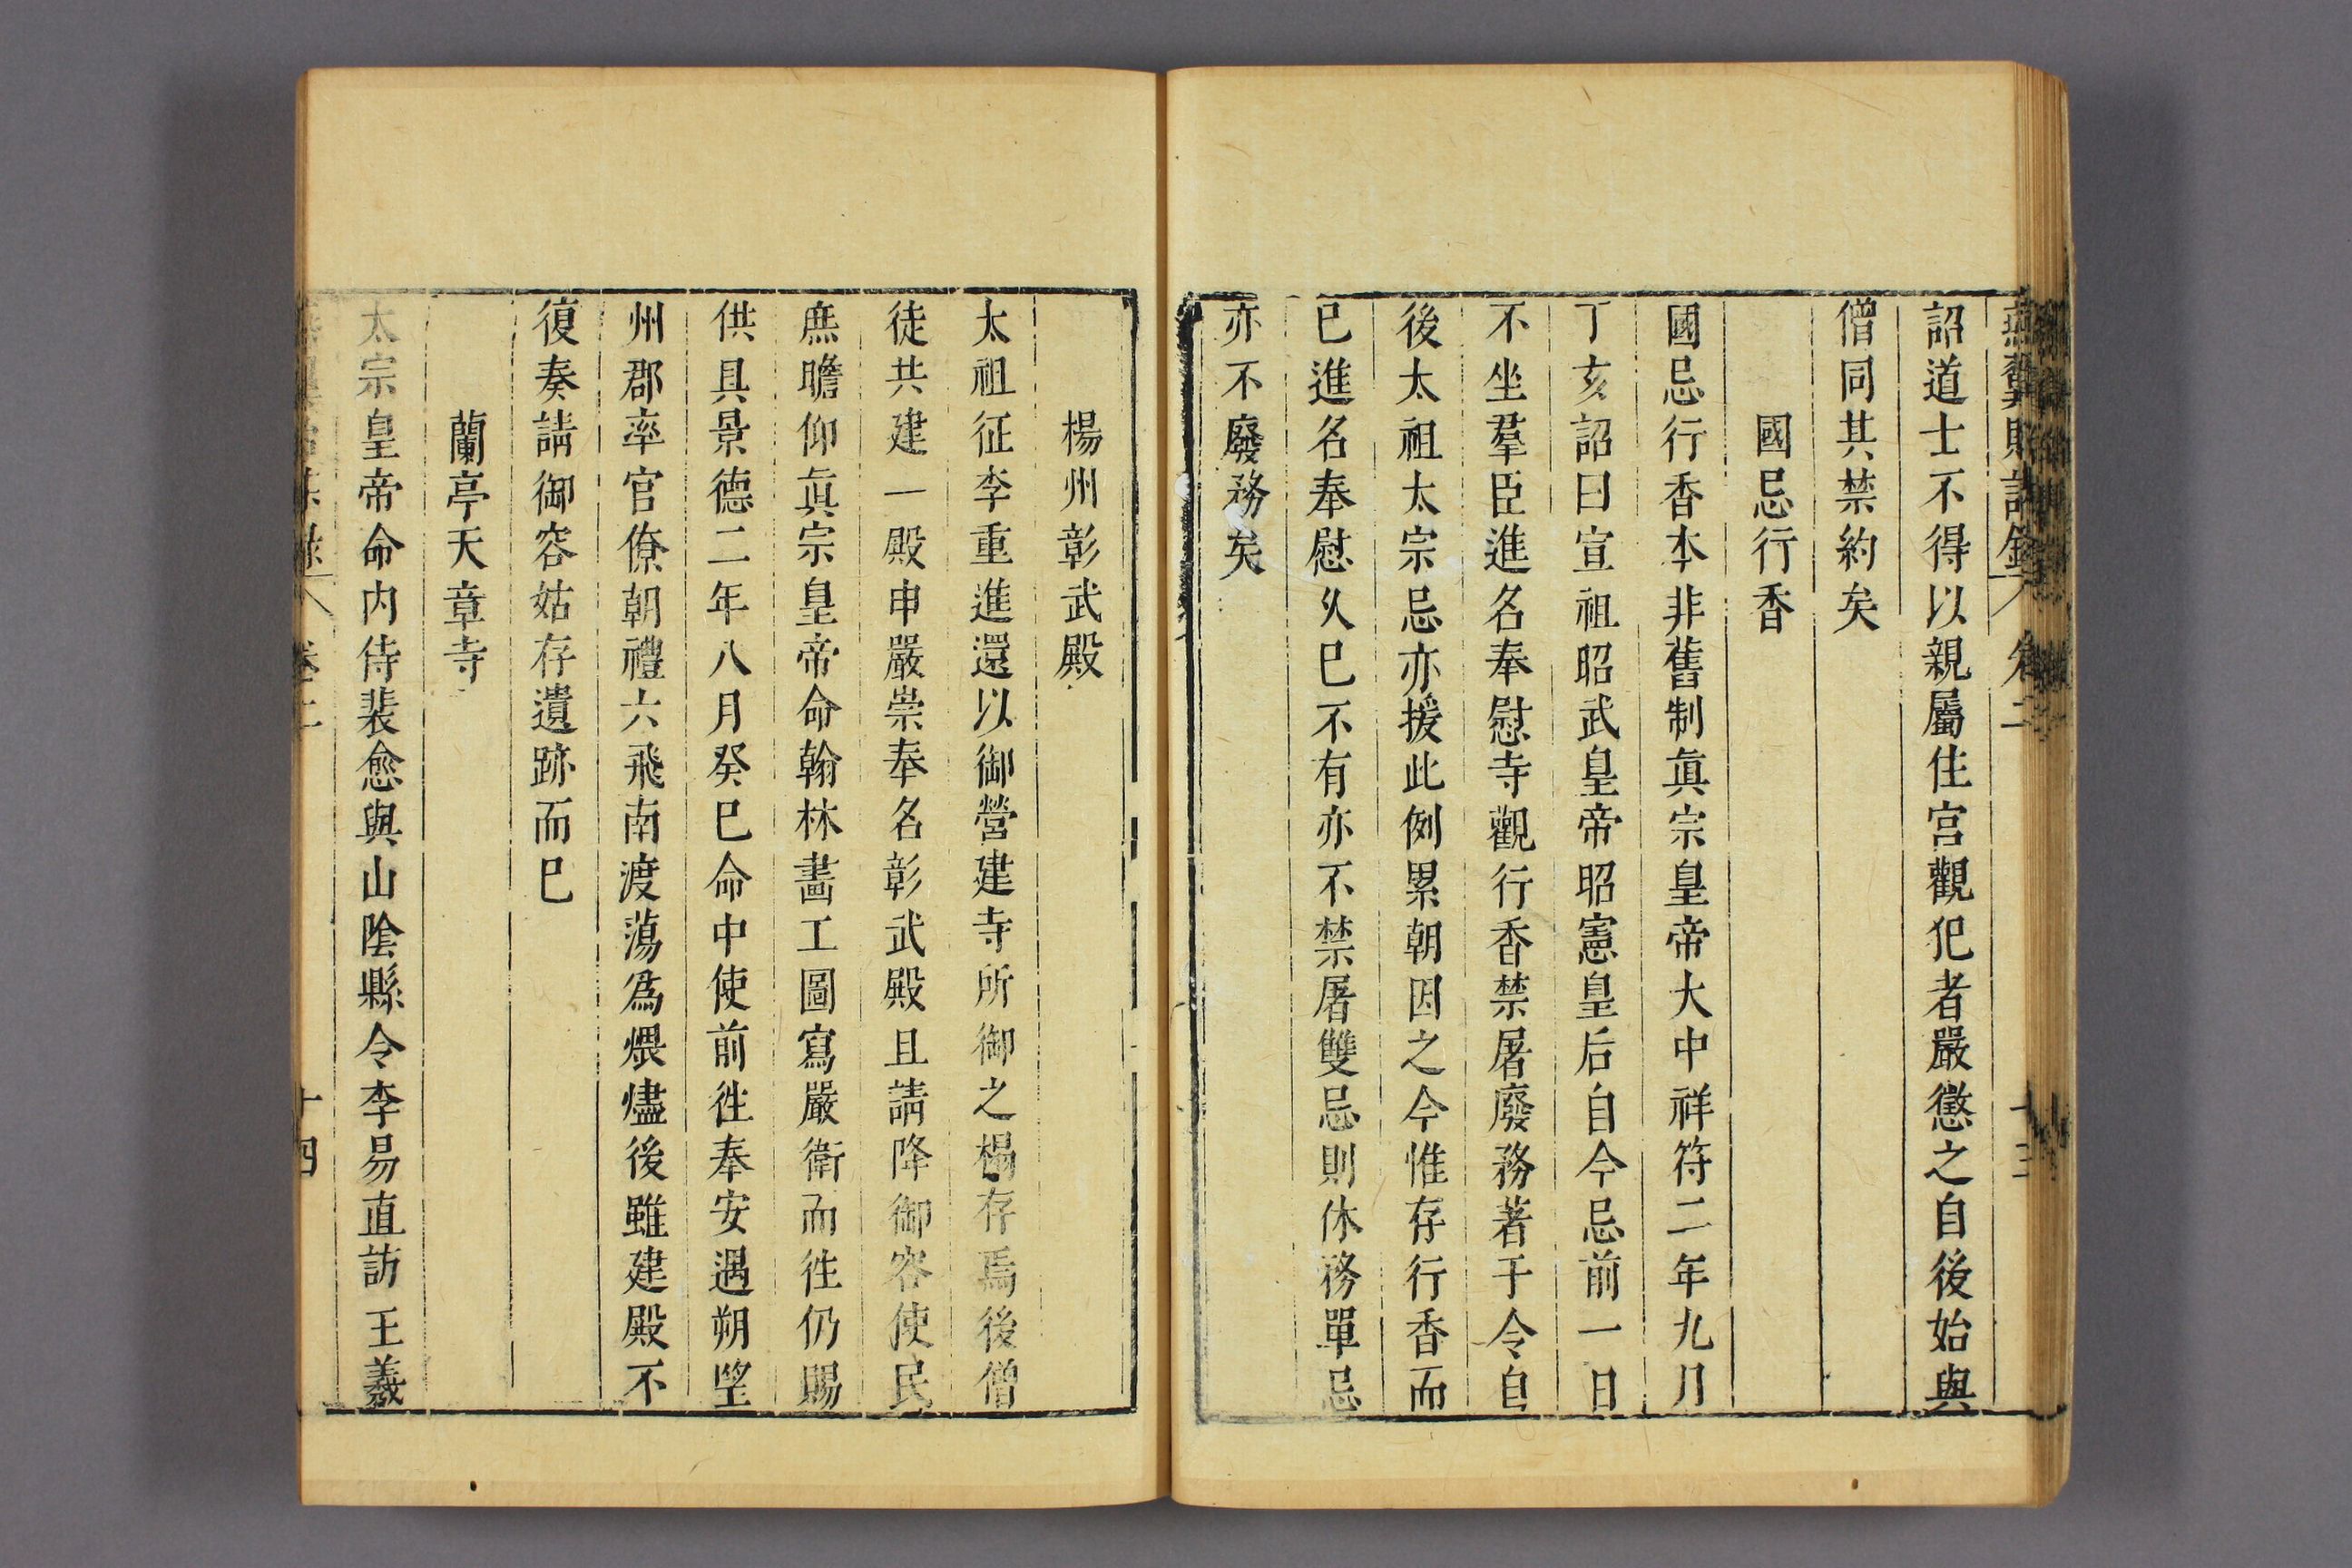 燕翼貽謀錄 卷二 十三
詔道士不得以親屬住宮觀犯者嚴懲之自後始與
僧同其禁約矣
國忌行香
國忌行香本非舊制眞宗皇帝大中祥符二年九月
丁亥詔曰宣祖昭武皇帝昭憲皇后自今忌前一日
不坐羣臣進名奉慰寺觀行香禁屠廢務著于令自
後太祖太宗忌亦援此例累朝因之今惟存行香而
已進名奉慰久已不有亦不禁屠雙忌則休務單忌
亦不廢務矣
楊州彰武殿
太祖征李重進還以御營建寺所御之榻存焉後僧
徒共建一殿申嚴崇奉名彰武殿且請降御容使民
庶瞻仰眞宗皇帝命翰林畵工圖寫嚴衛而徃仍賜
供具景德二年八月癸巳命中使前徃奉安遇朔望
州郡率官僚朝禮六飛南渡蕩爲煨燼後雖建殿不
復奏請御容姑存遺跡而已
蘭亭天章寺
太宗皇帝命内侍裴愈與山陰縣令李易直訪王羲
卷二 十四